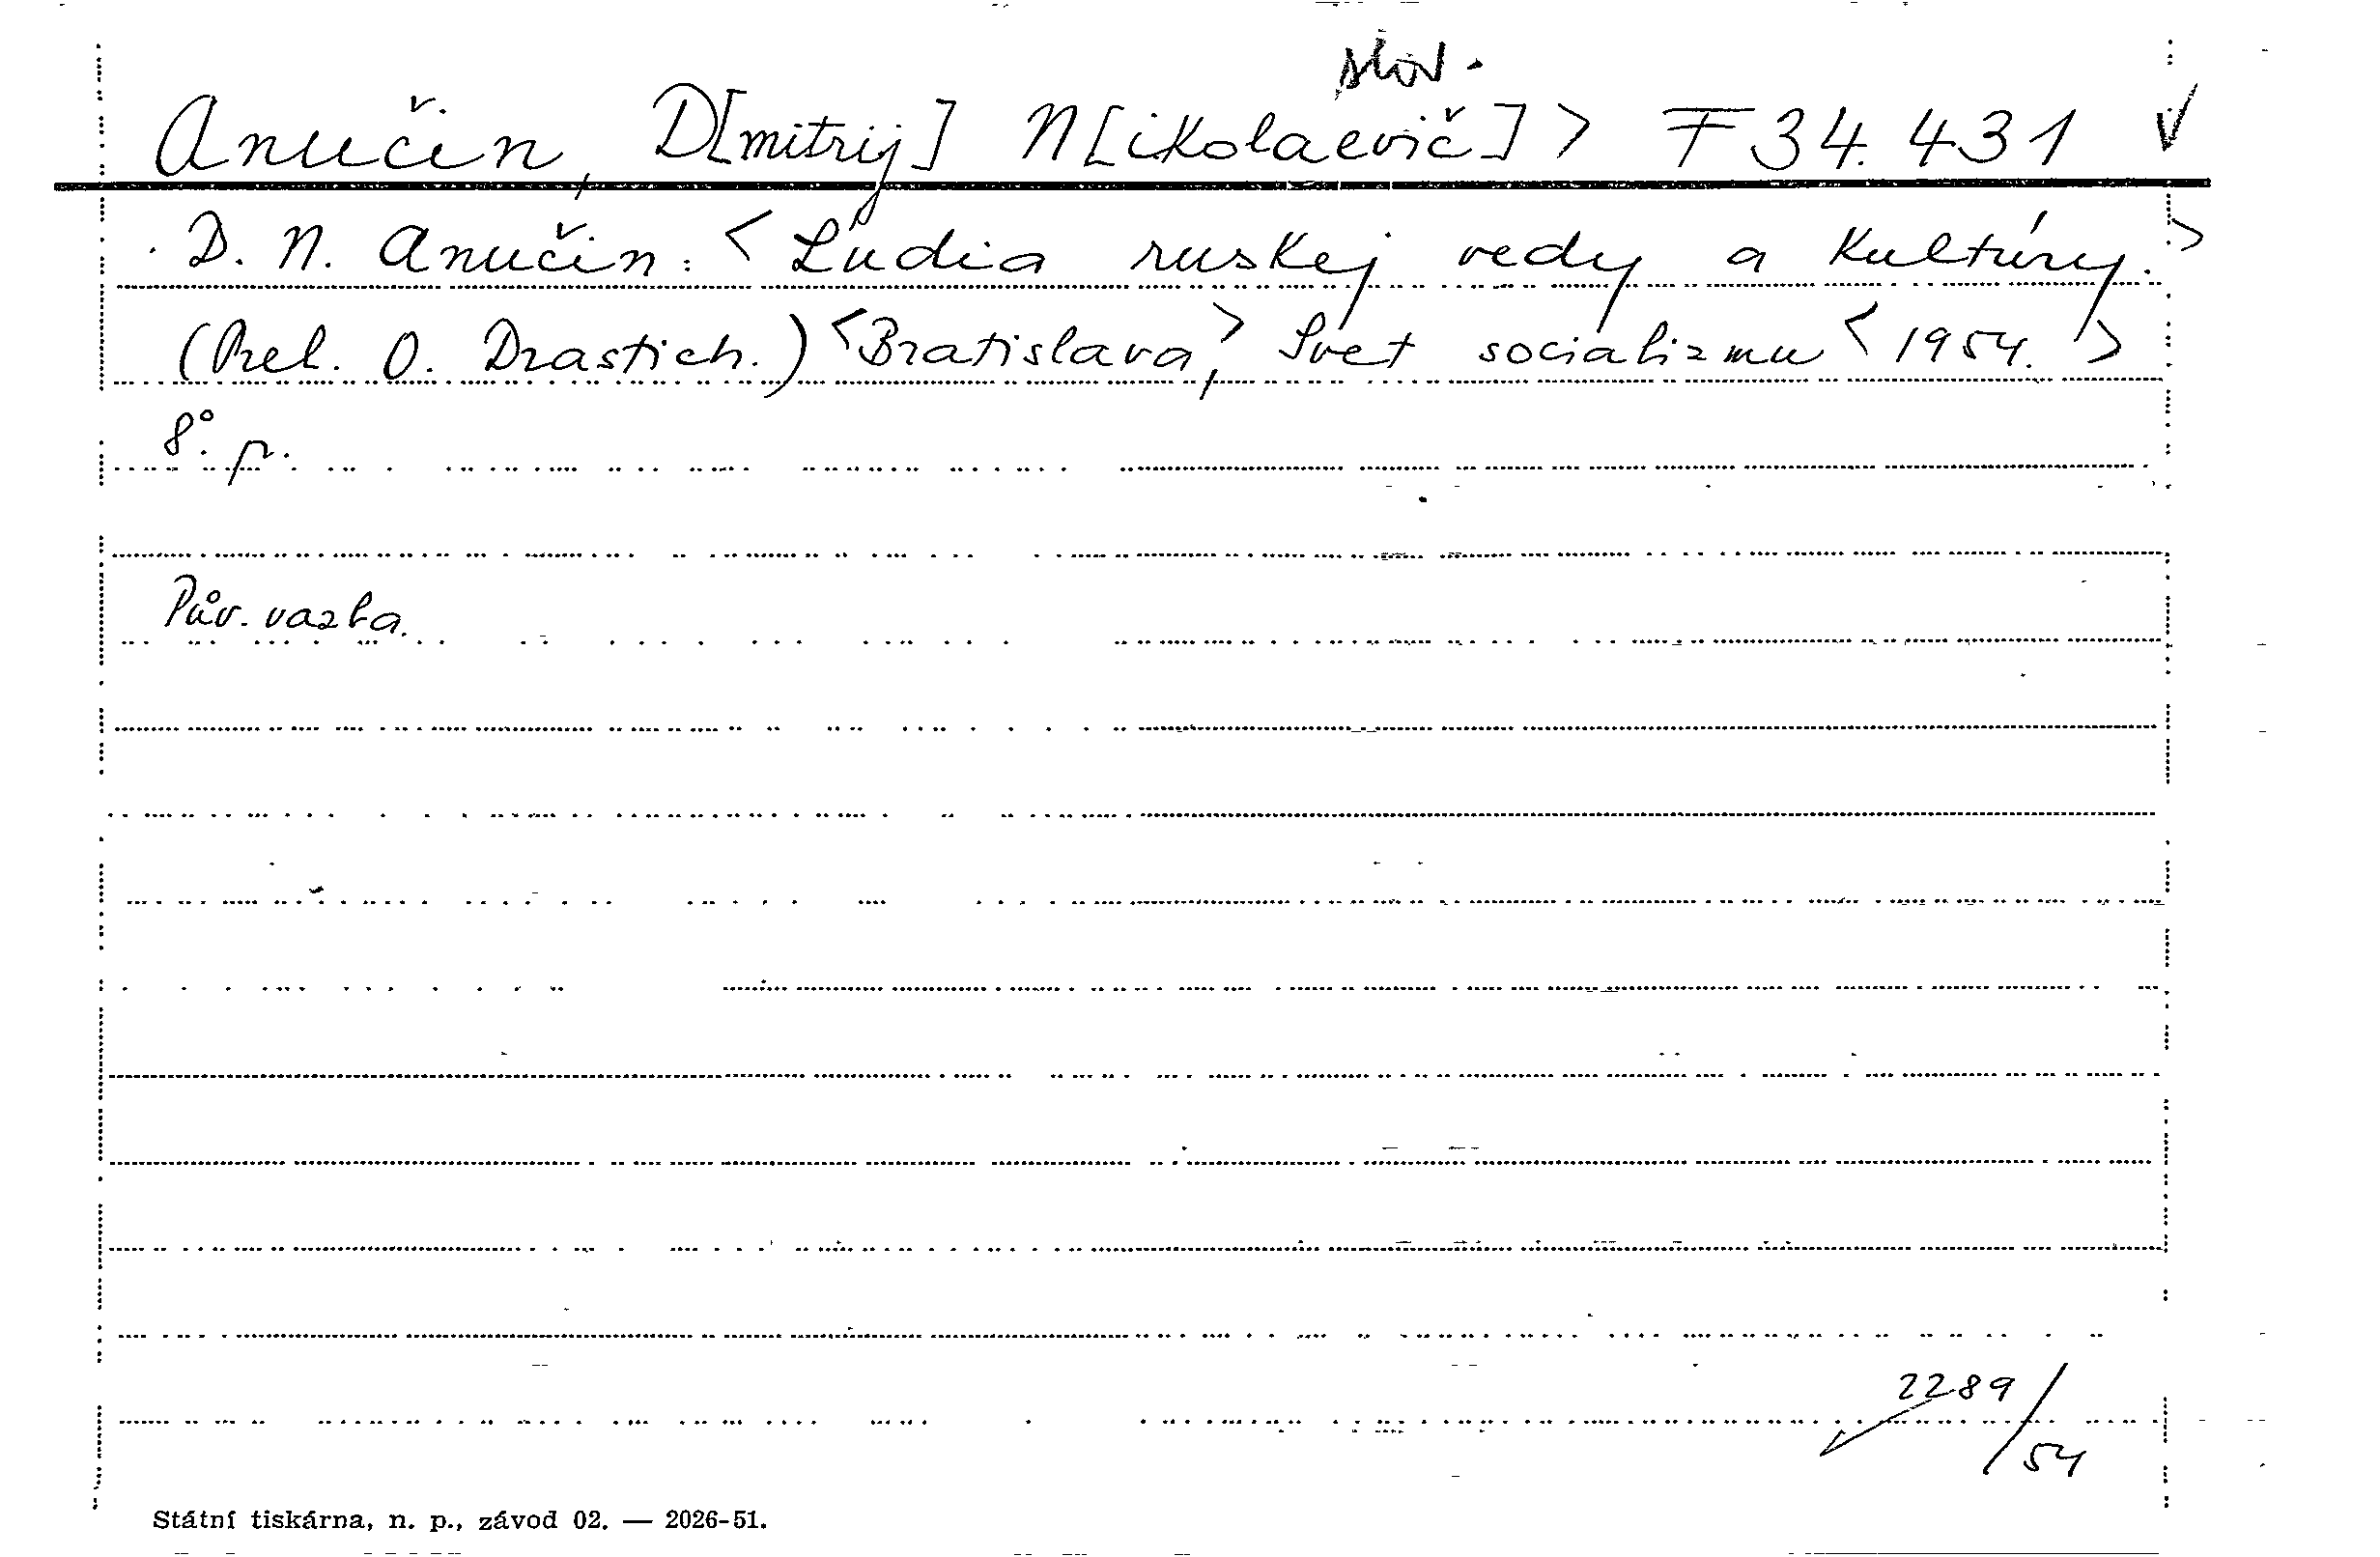 slov.
Anučin, D[mitrij] N[ikolaevič] > F 34.431 √
D. N. Anučin: < Ľudia ruskej vedy a kultúry. >
(Prel. O. Drastich.) < Bratislava, > Svet socializmu < 1954. >
8°. p.
Pův. vazba.
2289/54
Státní tiskárna, n. p., závod 02. — 2026-51.